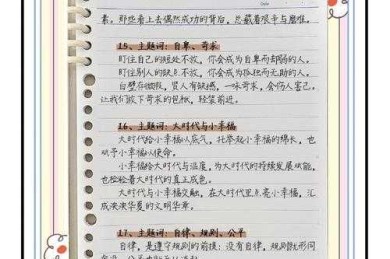 素。那些看上去偶然成功的背后，总藏着艰辛与磨难。
15、主题词：自卑、苛求
盯住自己的短处不放，你会成为自卑而却弱的人。
盯住别人的缺点不放，你会成为孤独而无助的人。
白璧有微瑕，贤人有缺憾，一味苛求，会伤人害己。
让我们放下苛求的包袱，轻装前进。
16、主题词：大时代与小幸福
大时代给小幸福以底气，托举起小幸福的绵长，也
赋予小幸福以使命。
小幸福给大时代与温度，为大时代的持续发展赋能，
也检验着大时代的真正成色。
大时代与小幸福交融，在大时代里点亮小幸福，汇
成泱泱华夏的文明华章。
17、主题词：自律、规则、公平
自律，是遵守规则的前提；没有自律，规则就形同